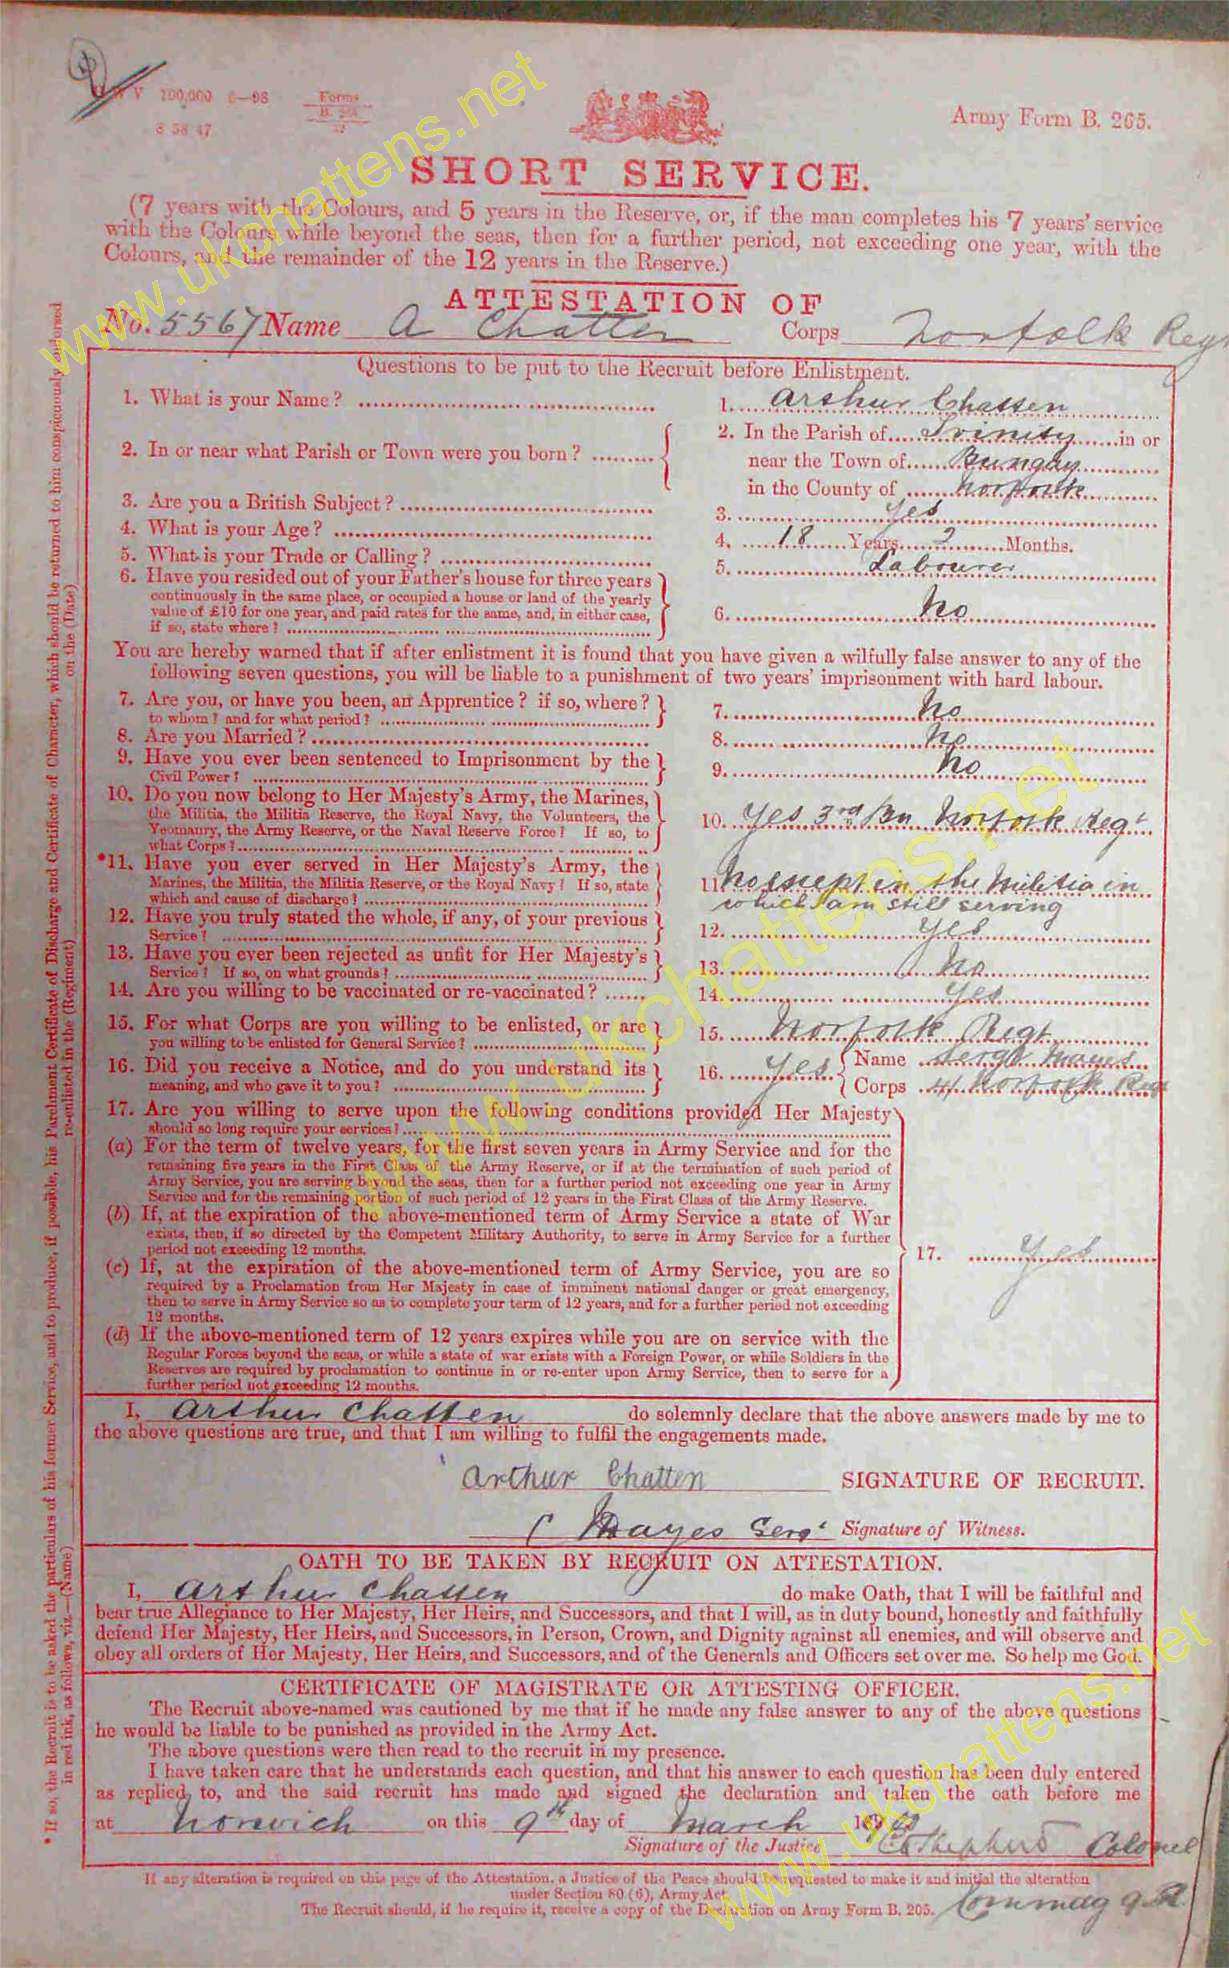 W V 100,000 6—98
Forms
B. 265
8 58 47
Army Form B. 265.
SHORT SERVICE.
(7 years with the Colours, and 5 years in the Reserve, or, if the man completes his 7 years' service
with the Colours while beyond the seas, then for a further period, not exceeding one year, with the
Colours, and the remainder of the 12 years in the Reserve.)
ATTESTATION OF
No. 5567 Name A Chatten Corps Norfolk Regt
Questions to be put to the Recruit before Enlistment.
1. What is your Name? 1. Arthur Chatten
2. In or near what Parish or Town were you born? 2. In the Parish of Trinity in or
near the Town of Bungay
in the County of Norfolk
3. Are you a British Subject? 3. Yes
4. What is your Age? 4. 18 Years 2 Months.
5. What is your Trade or Calling? 5. Labourer
6. Have you resided out of your Father's house for three years
continuously in the same place, or occupied a house or land of the yearly
value of £10 for one year, and paid rates for the same, and, in either case,
if so, state where? 6. No
You are hereby warned that if after enlistment it is found that you have given a wilfully false answer to any of the
following seven questions, you will be liable to a punishment of two years' imprisonment with hard labour.
7. Are you, or have you been, an Apprentice? if so, where?
to whom? and for what period? 7. No
8. Are you Married? 8. No
9. Have you ever been sentenced to Imprisonment by the
Civil Power? 9. No
10. Do you now belong to Her Majesty's Army, the Marines,
the Militia, the Militia Reserve, the Royal Navy, the Volunteers, the
Yeomanry, the Army Reserve, or the Naval Reserve Force? If so, to
what Corps? 10. Yes 3rd Bn Norfolk Regt
*11. Have you ever served in Her Majesty's Army, the
Marines, the Militia, the Militia Reserve, or the Royal Navy? If so, state
which and cause of discharge? 11. No except in the Militia in
which I am still serving
12. Have you truly stated the whole, if any, of your previous
Service? 12. Yes
13. Have you ever been rejected as unfit for Her Majesty's
Service? If so, on what grounds? 13. No
14. Are you willing to be vaccinated or re-vaccinated? 14. Yes
15. For what Corps are you willing to be enlisted, or are
you willing to be enlisted for General Service? 15. Norfolk Regt
16. Did you receive a Notice, and do you understand its
meaning, and who gave it to you? 16. Yes Name Sergt Mayes
Corps 4/ Norfolk Regt
17. Are you willing to serve upon the following conditions provided Her Majesty
should so long require your services?
(a) For the term of twelve years, for the first seven years in Army Service and for the
remaining five years in the First Class of the Army Reserve, or if at the termination of such period of
Army Service, you are serving beyond the seas, then for a further period not exceeding one year in Army
Service and for the remaining portion of such period of 12 years in the First Class of the Army Reserve.
(b) If, at the expiration of the above-mentioned term of Army Service a state of War
exists, then, if so directed by the Competent Military Authority, to serve in Army Service for a further
period not exceeding 12 months.
17. Yes
(c) If, at the expiration of the above-mentioned term of Army Service, you are so
required by a Proclamation from Her Majesty in case of imminent national danger or great emergency,
then to serve in Army Service so as to complete your term of 12 years, and for a further period not exceeding
12 months.
(d) If the above-mentioned term of 12 years expires while you are on service with the
Regular Forces beyond the seas, or while a state of war exists with a Foreign Power, or while Soldiers in the
Reserves are required by proclamation to continue in or re-enter upon Army Service, then to serve for a
further period not exceeding 12 months.
I, Arthur Chatten do solemnly declare that the above answers made by me to
the above questions are true, and that I am willing to fulfil the engagements made.
Arthur Chatten SIGNATURE OF RECRUIT.
C Mayes Sergt Signature of Witness.
OATH TO BE TAKEN BY RECRUIT ON ATTESTATION.
I, Arthur Chatten do make Oath, that I will be faithful and
bear true Allegiance to Her Majesty, Her Heirs, and Successors, and that I will, as in duty bound, honestly and faithfully
defend Her Majesty, Her Heirs, and Successors, in Person, Crown, and Dignity against all enemies, and will observe and
obey all orders of Her Majesty, Her Heirs, and Successors, and of the Generals and Officers set over me. So help me God.
CERTIFICATE OF MAGISTRATE OR ATTESTING OFFICER.
The Recruit above-named was cautioned by me that if he made any false answer to any of the above questions
he would be liable to be punished as provided in the Army Act.
The above questions were then read to the recruit in my presence.
I have taken care that he understands each question, and that his answer to each question has been duly entered
as replied to, and the said recruit has made and signed the declaration and taken the oath before me
at Norwich on this 9th day of March
Signature of the Justice Shepherd Colonel
If any alteration is required on this page of the Attestation, a Justice of the Peace should be requested to make it and initial the alteration
under Section 80 (6), Army Act.
The Recruit should, if he require it, receive a copy of the Declaration on Army Form B. 265.
Commdg 9
* If so, the Recruit is to be asked the particulars of his former Service, and to produce, if possible, his Parchment Certificate of Discharge and Certificate of Character, which should be returned to him conspicuously endorsed
in red ink, as follows, viz.—(Name) re-enlisted in the (Regiment) on the (Date)
www.ukchattens.net
www.ukchattens.net
www.ukchattens.net